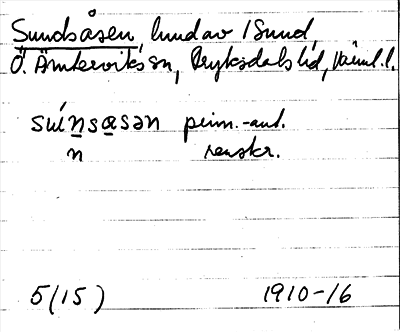 Sundsåsen lund av / Sund,
Ö. Ämterviks sn, Fryksdals hd, Värml. l.
suńsasən prim.-ant.
n renskr.
5(15) 1910-16